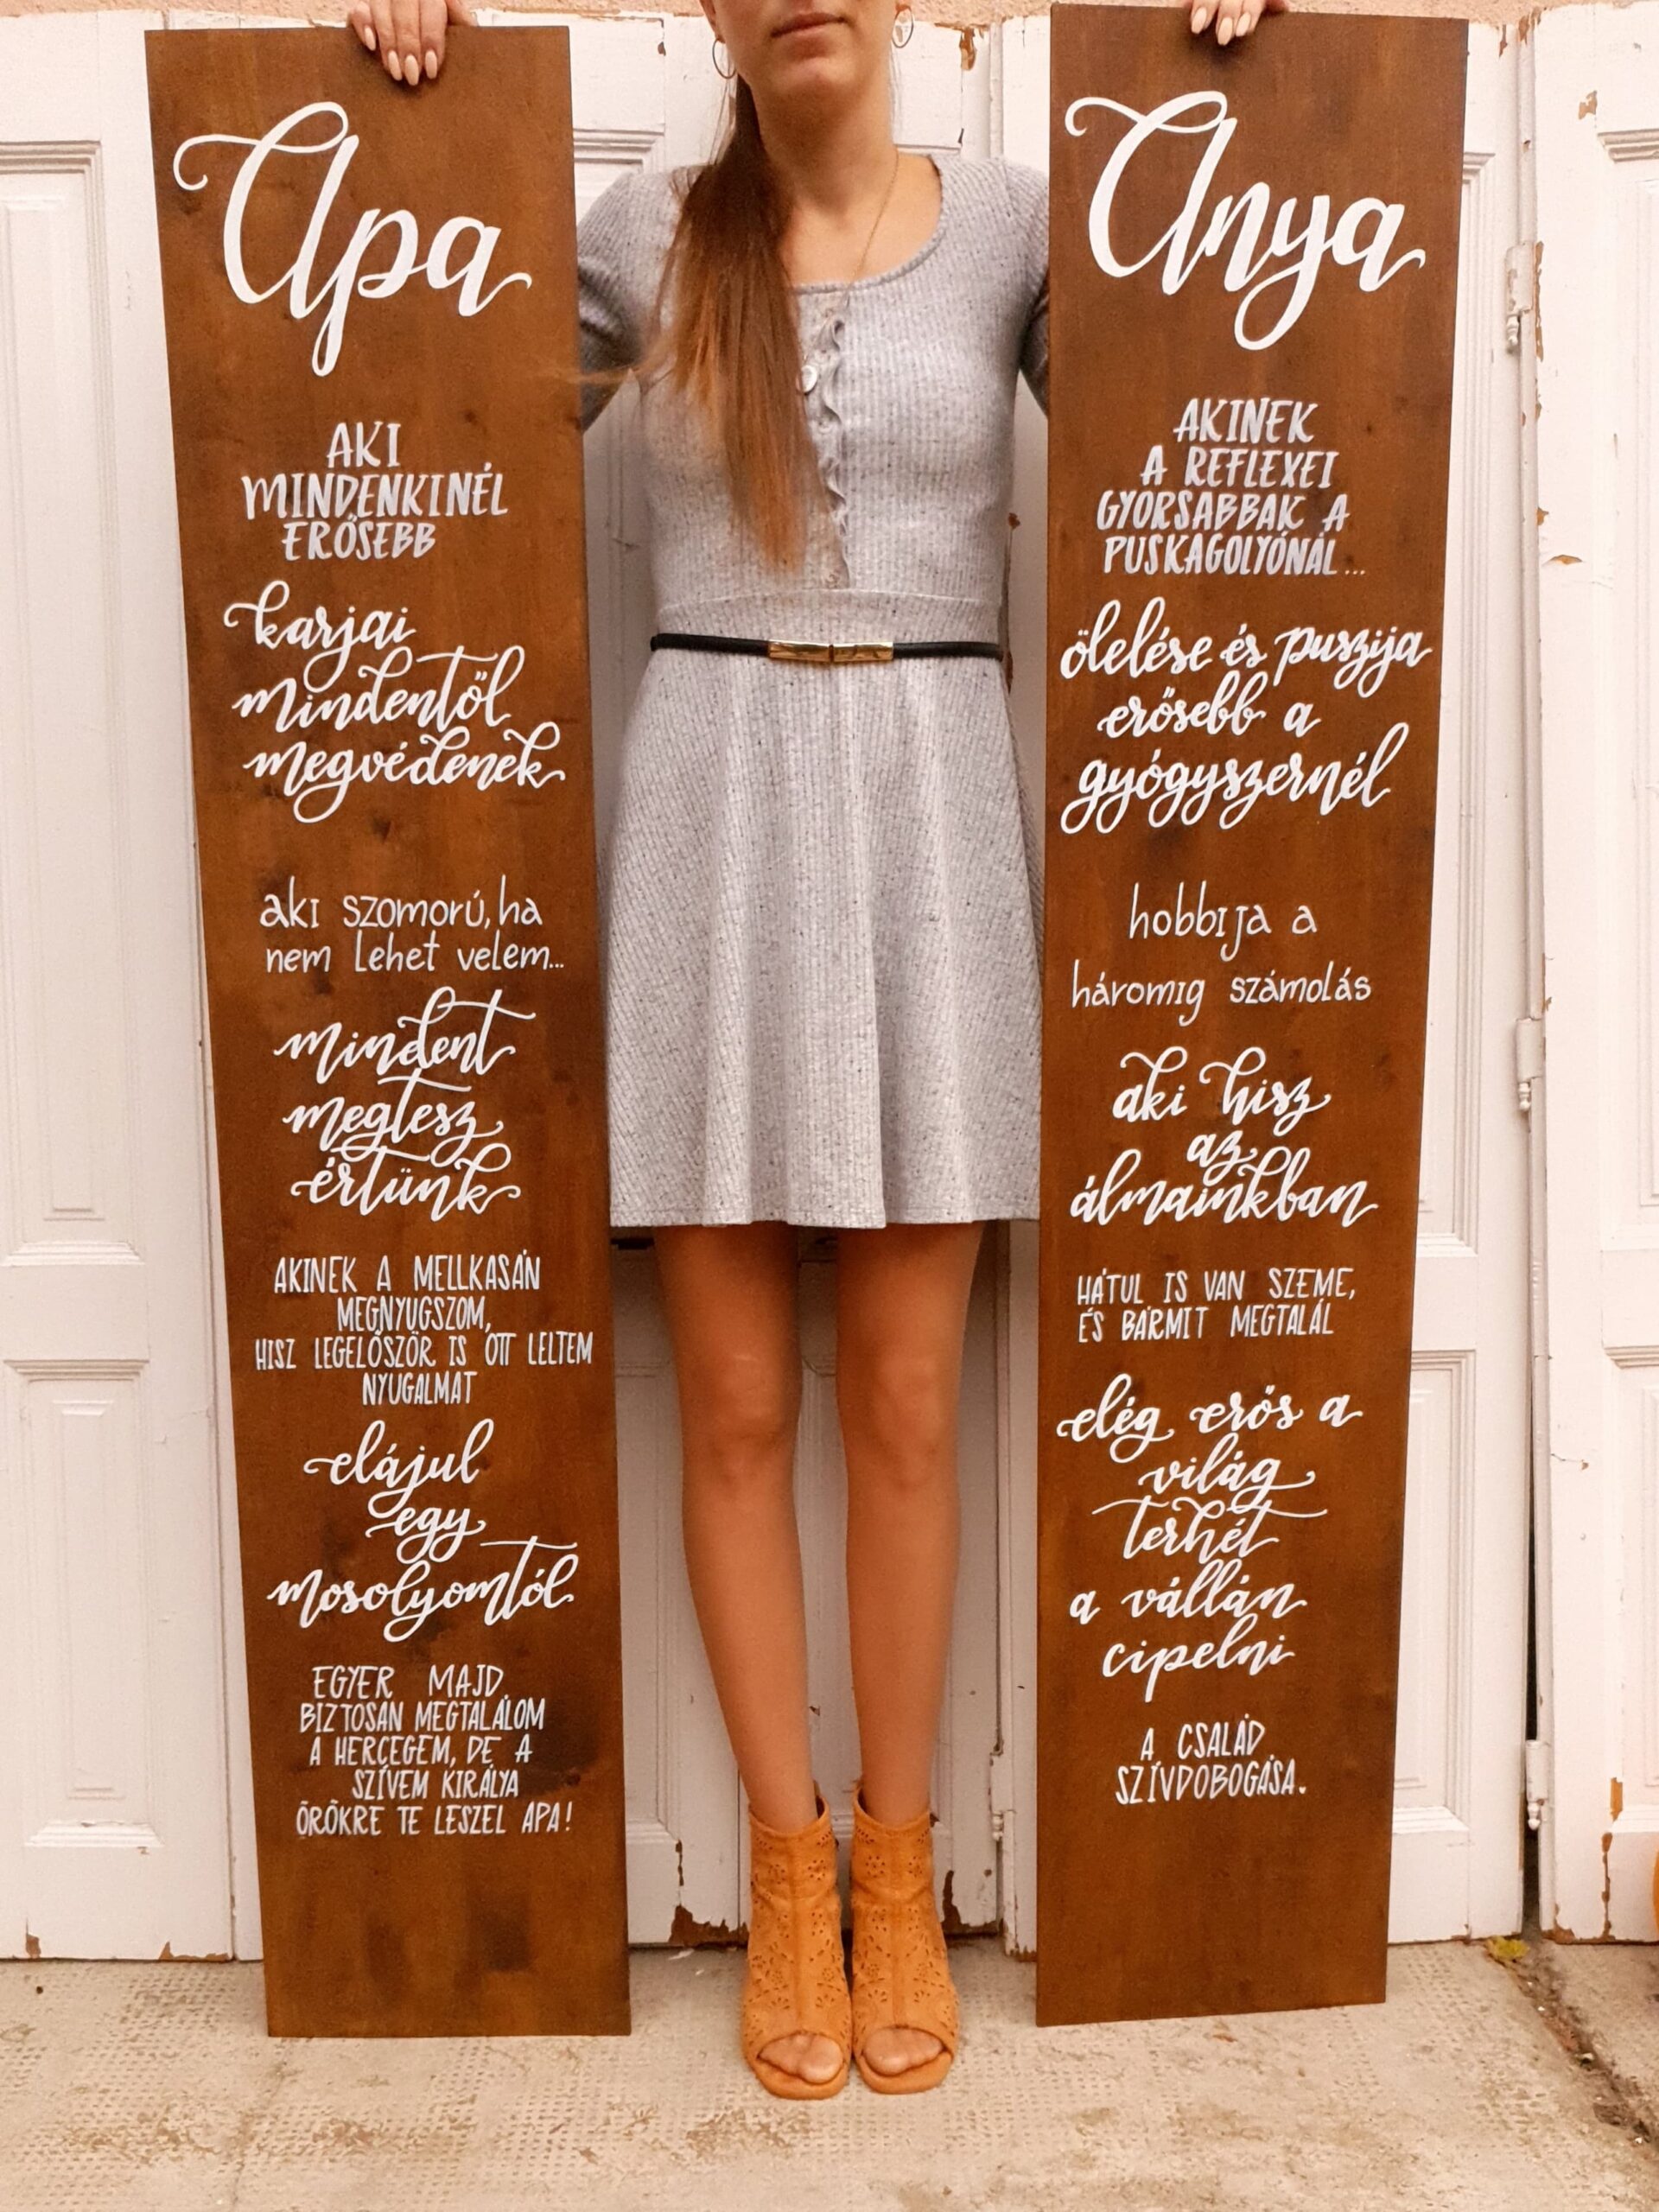 Apa
AKI
MINDENKINÉL
ERŐSEBB
karjai
mindentől
megvédenek
aki szomorú, ha
nem lehet velem...
mindent
megtesz
értünk
AKINEK A MELLKASÁN
MEGNYUGSZOM,
HISZ LEGELŐSZÖR IS OTT LELTEM
NYUGALMAT
elájul
egy
mosolyomtól
EGYER MAJD
BIZTOSAN MEGTALÁLOM
A HERCEGEM, DE A
SZÍVEM KIRÁLYA
ÖRÖKRE TE LESZEL APA!
Anya
AKINEK
A REFLEXEI
GYORSABBAK A
PUSKAGOLYÓNÁL...
ölelése és puszija
erősebb a
gyógyszernél
hobbija a
háromig számolás
aki hisz
az
álmainkban
HÁTUL IS VAN SZEME,
ÉS BÁRMIT MEGTALÁL
elég erős a
világ
terhét
a vállán
cipelni
A CSALÁD
SZÍVDOBOGÁSA.